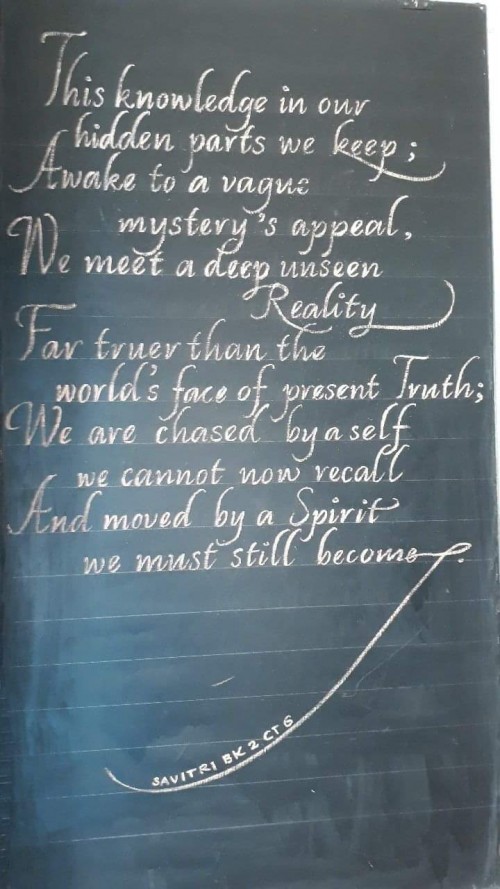 This knowledge in our
hidden parts we keep;
Awake to a vague
mystery's appeal,
We meet a deep unseen
Reality
Far truer than the
world's face of present Truth;
We are chased by a self
we cannot now recall
And moved by a Spirit
we must still become.
SAVITRI BK 2 CT 6